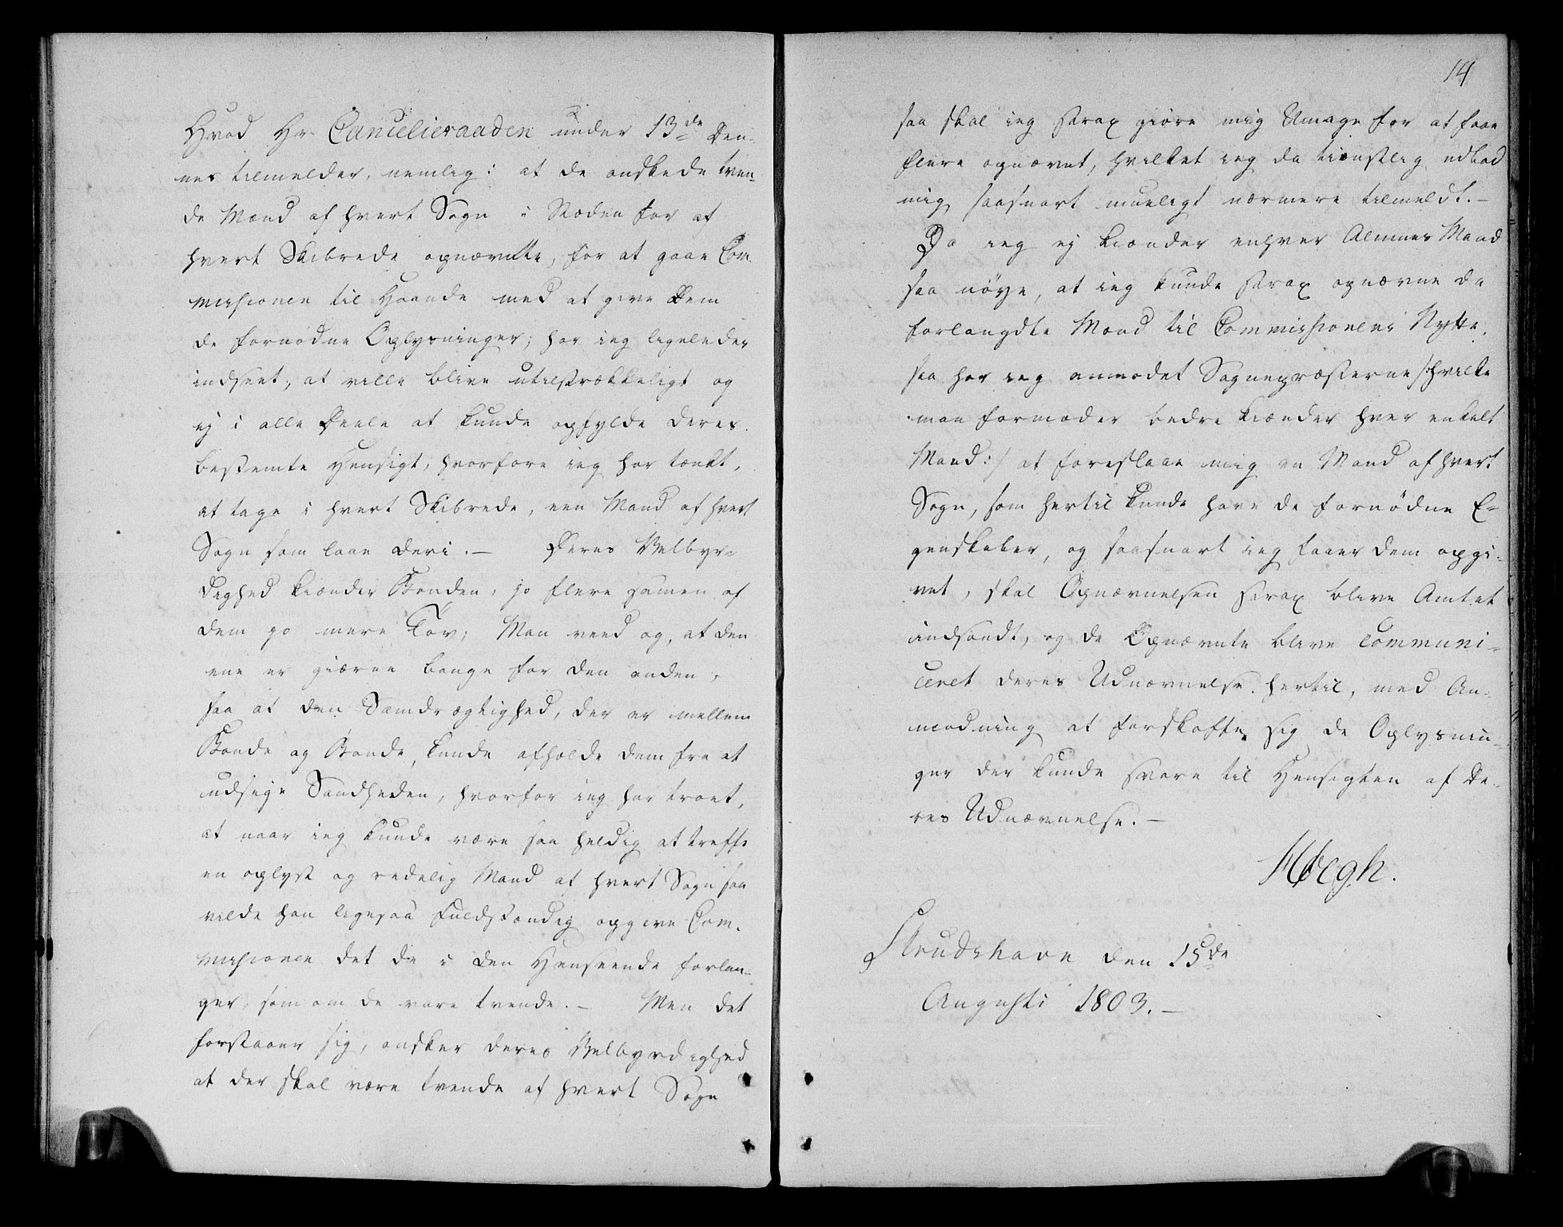 Hvad Hr Cancelieraaden under 13de Den-
nes tilmelder, nemlig: at de ønskede tven-
de Mænd af hvert Sogn i Stæden for af
hvert Skibrede opnævnte, for at gaae Com
missionen til Haande med at give Dem
de fornødne Oplysninger; har ieg ligeledes
indseet, at ville blive utilstrækkeligt og
ej i alle Deele at kunde opfylde deres
bestemte Hensigt, hvorfore ieg har tænkt,
at tage i hvert Skibrede, een Mand af hvert
Sogn som laae deri. — Deres Velbyr-
dighed kiænder Bonden, jo flere samen af
dem jo mere Tov; Man veed og, at den
ene er giærne bange for den anden,
saa at den Samdrægtighed, der er mellem
Bonde og Bonde, kunde afholde dem fra at
udsige Sandheden, hvorfor ieg har troet,
at naar ieg kunde være saa heldig at treffe
en oplyst og redelig Mand af hvert Sogn saa
vilde han ligesaa fuldstændig opgive Com-
missionen det de i den Henseende forlan-
ger, som om de vare tvende. — Men det
forstaaer sig, ønsker deres Velbyrdighed
at der skal være tvende af hvert Sogn
14
saa skal ieg strax giøre mig Umage for at faae
flere opnævnt, hvilket ieg da tienstlig udbad
mig saasnart mueligt nærmere tilmeldt. —
Da ieg ej kiænder enhver Almues Mand
saa nøye, at ieg kunde strax opnævne de
forlangdte Mænd til Commissionens Nytte,
saa har ieg anmodet Sognepræsterne /:hvilke
man formoder bedre kiænder hver enkelt
Mand:/ at foreslaae mig en Mand af hvert
Sogn, som hertil kunde have de fornødne E-
genskaber, og saasnart ieg faaer dem opgi-
vet, skal Opnævnelsen strax blive Amtet
indsendt, og de Opnævnte blive communi-
ceret deres Udnævnelse hertil, med An-
modning at forskaffe sig de Oplysnin-
ger der kunde svare til Hensigten af De-
res Udnævnelse. —
Høegh.
Strudshavn den 15de
Augusti 1803. —